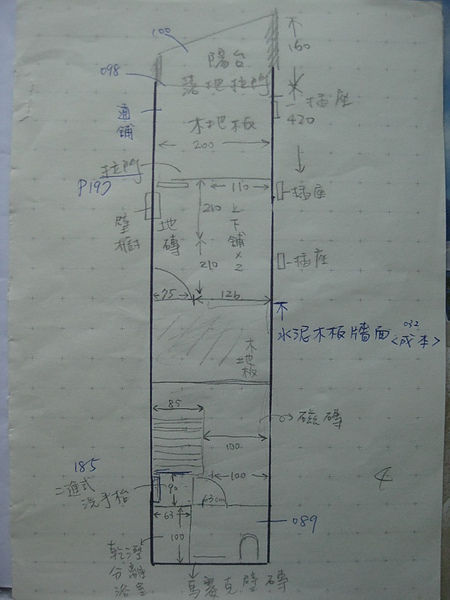 100
陽台
不
160
098
落地拉門
插座
420
通鋪
木地板
200
拉門
P197
110
插座
壁櫥
地磚
210
上下鋪x2
210
插座
75
126
不
水泥木板牆面
032
<成本>
木地板
85
磁磚
100
185
二進式
洗手枱
90
100
63cm
63
100
089
乾溼
分離
浴室
馬賽克壁磚
4